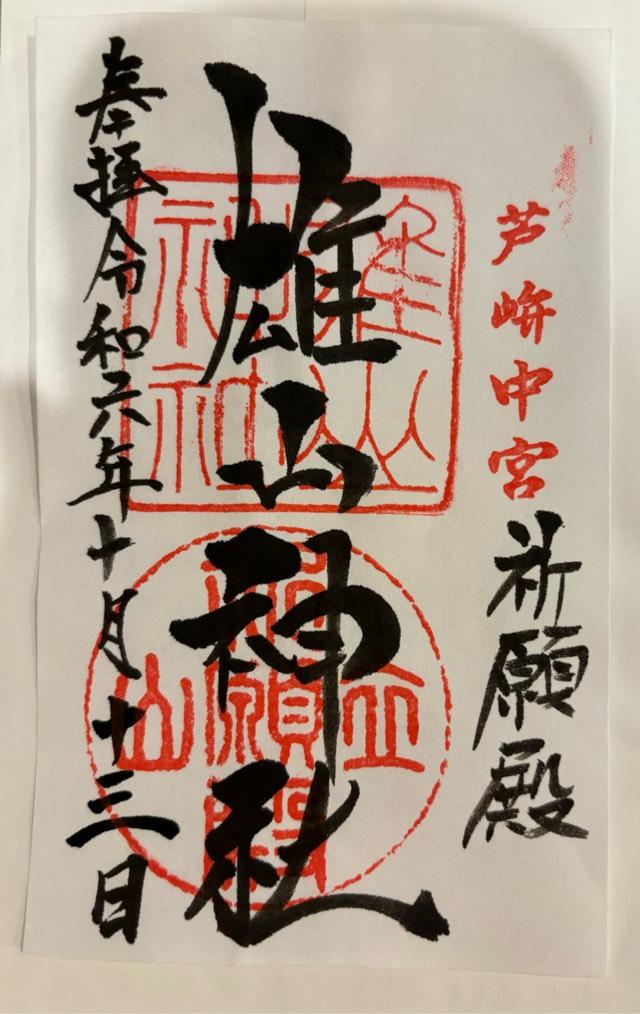 芦峅中宮 祈願殿
雄山神社
雄山神社
立山 祈願殿
奉拝 令和六年十月十三日